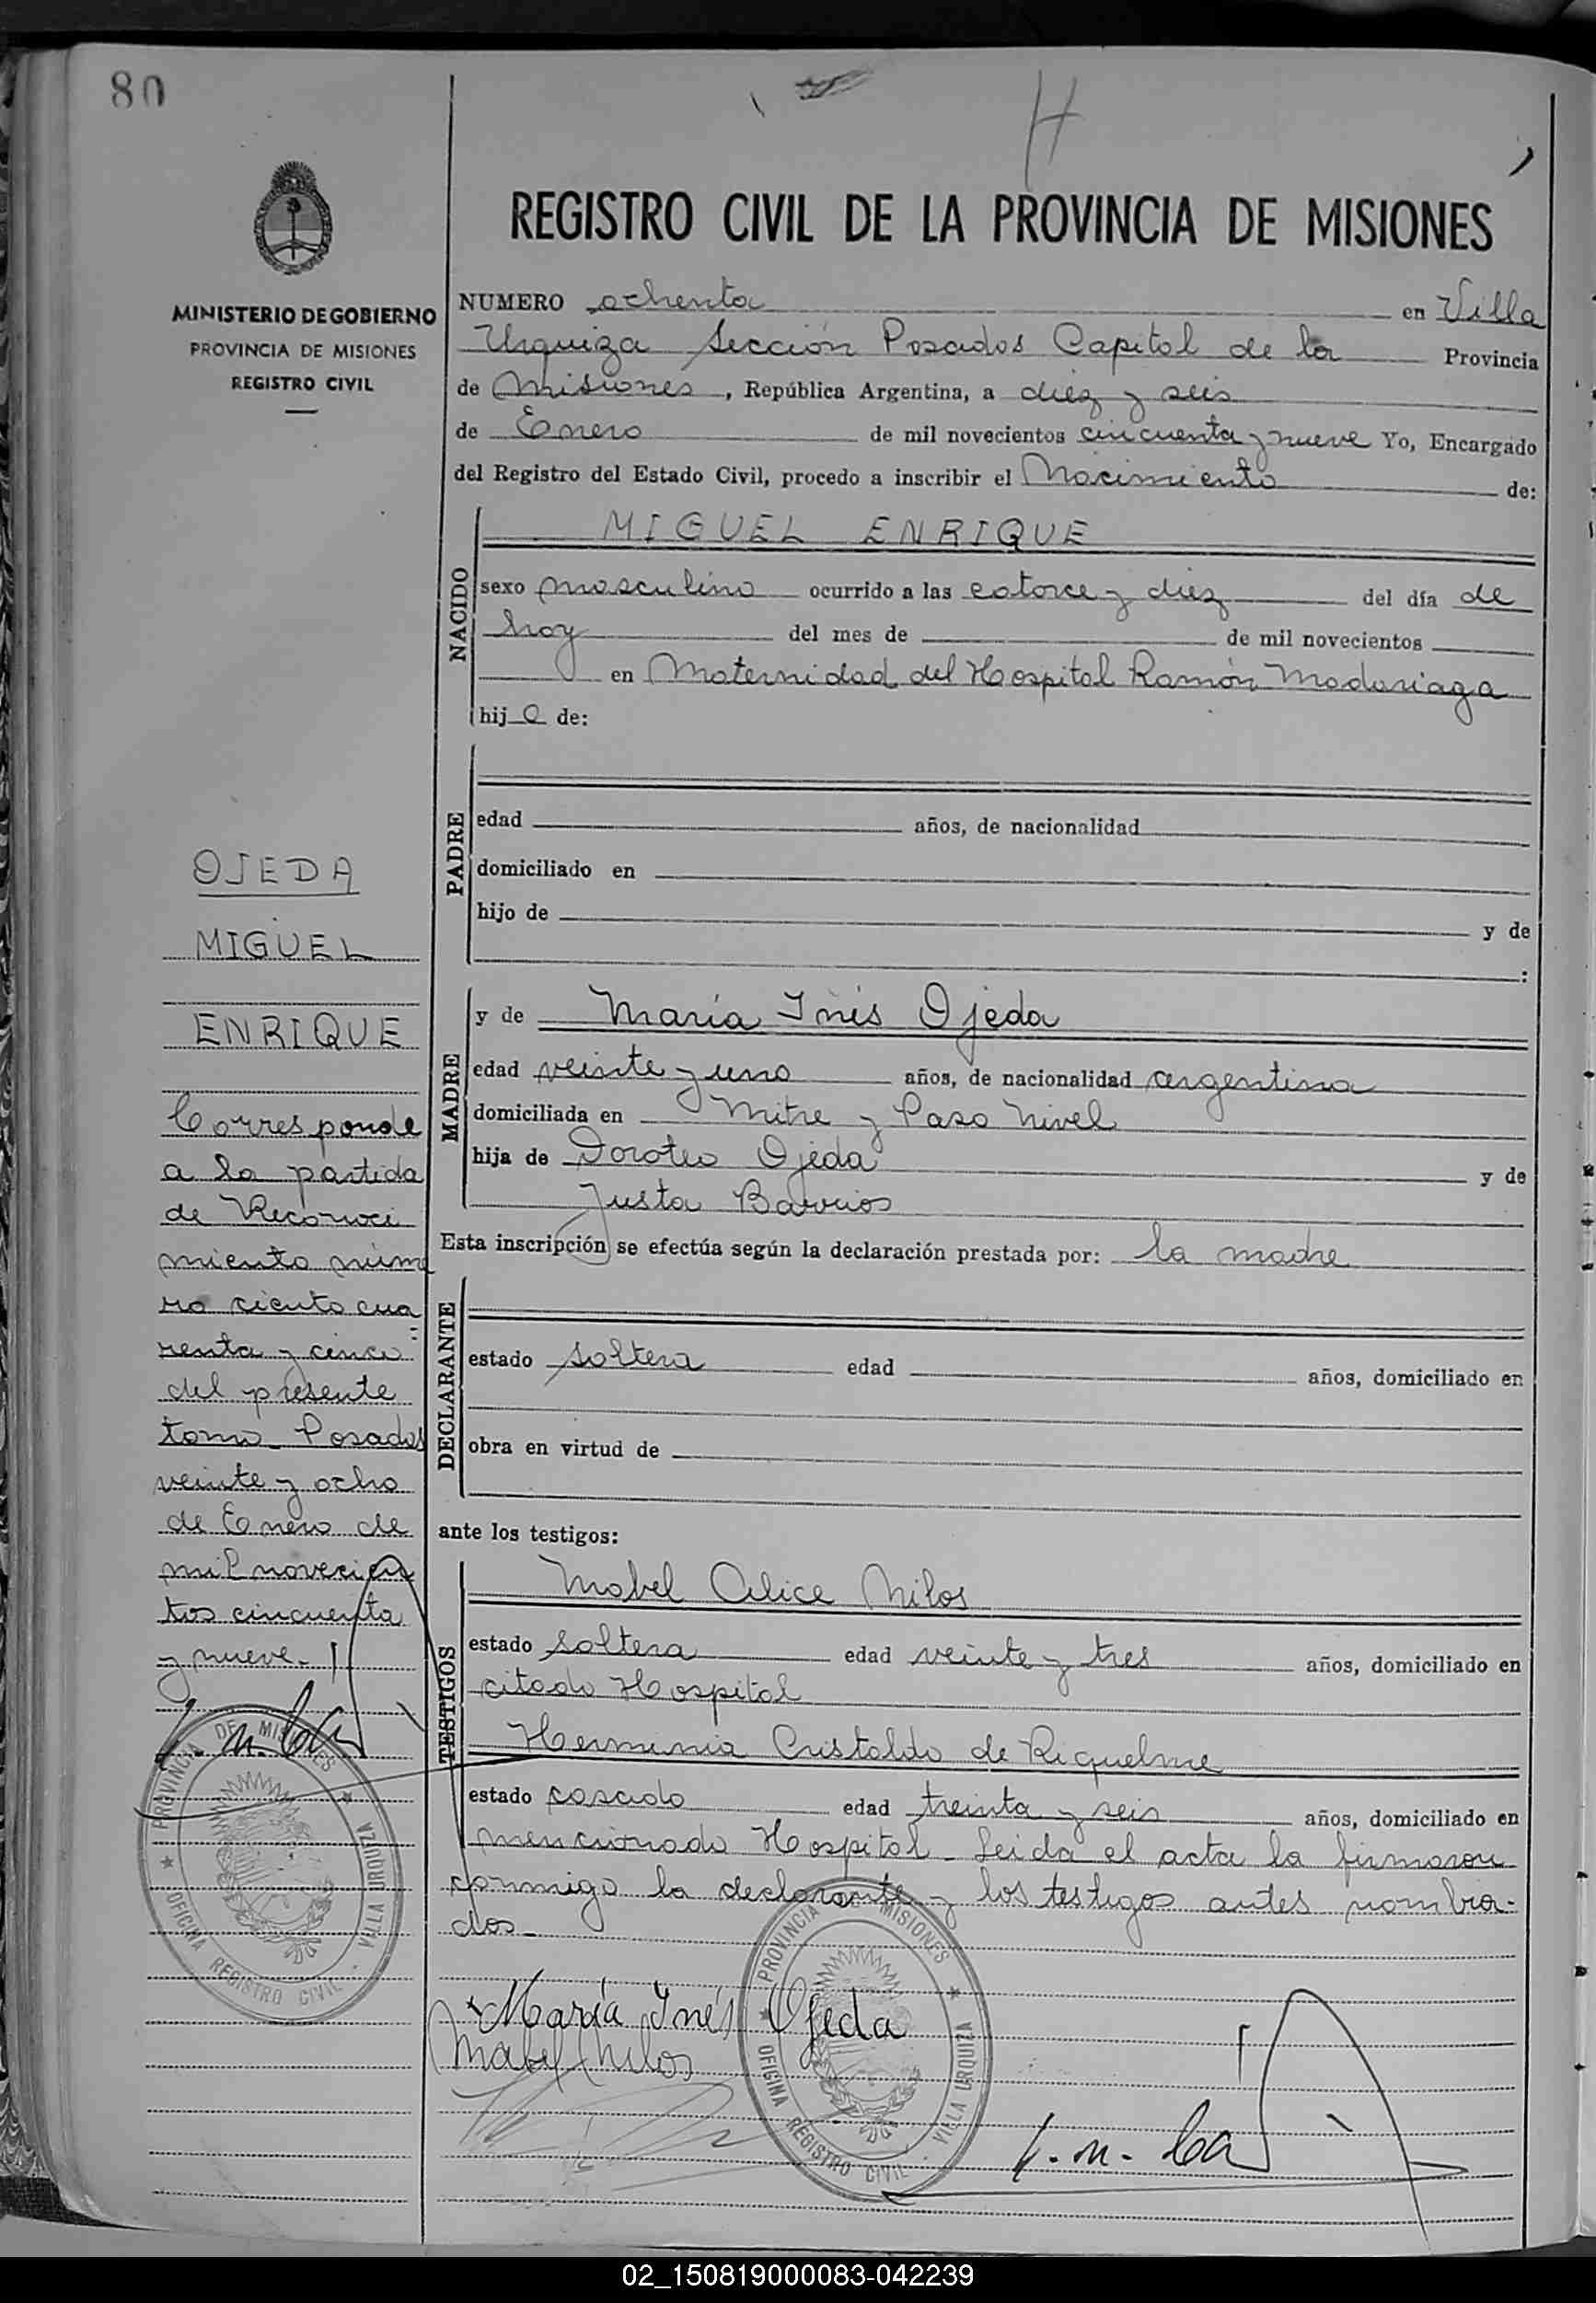 80
H
REGISTRO CIVIL DE LA PROVINCIA DE MISIONES
MINISTERIO DE GOBIERNO
PROVINCIA DE MISIONES
REGISTRO CIVIL
NUMERO ochenta en Villa
Urquiza Sección Posadas Capital de la Provincia
de Misiones, República Argentina, a diez y seis
de Enero de mil novecientos cincuenta y nueve Yo, Encargado
del Registro del Estado Civil, procedo a inscribir el Nacimiento de:
NACIDO
MIGUEL ENRIQUE
sexo masculino ocurrido a las catorce y diez del día de
hoy del mes de de mil novecientos
en Maternidad del Hospital Ramón Madariaga
hijo de:
PADRE
edad años, de nacionalidad
domiciliado en
hijo de y de
:
MADRE
y de María Inés Ojeda
edad veinte y uno años, de nacionalidad argentina
domiciliada en Mitre y Paso Nivel
hija de Doroteo Ojeda y de
Justa Barrios
Esta inscripción se efectúa según la declaración prestada por: la madre
DECLARANTE
estado soltera edad años, domiciliado en
obra en virtud de
ante los testigos:
TESTIGOS
Mabel Alice Milos
estado soltera edad veinte y tres años, domiciliado en
citado Hospital
Herminia Cristaldo de Riquelme
estado casado edad treinta y seis años, domiciliado en
mencionado Hospital. Leida el acta la firmaron
conmigo la declarante y los testigos antes nombra-
dos.-
María Inés Ojeda
Mabel Milos
PROVINCIA DE MISIONES
OFICINA REGISTRO CIVIL - VILLA URQUIZA
OJEDA
MIGUEL
ENRIQUE
Corresponde
a la partida
de Reconoci
miento núme
ro ciento cua
renta y cinco
del presente
tomo. Posadas
veinte y ocho
de Enero de
mil novecien
tos cincuenta
y nueve.-
PROVINCIA DE MISIONES
OFICINA REGISTRO CIVIL - VILLA URQUIZA
02_150819000083-042239